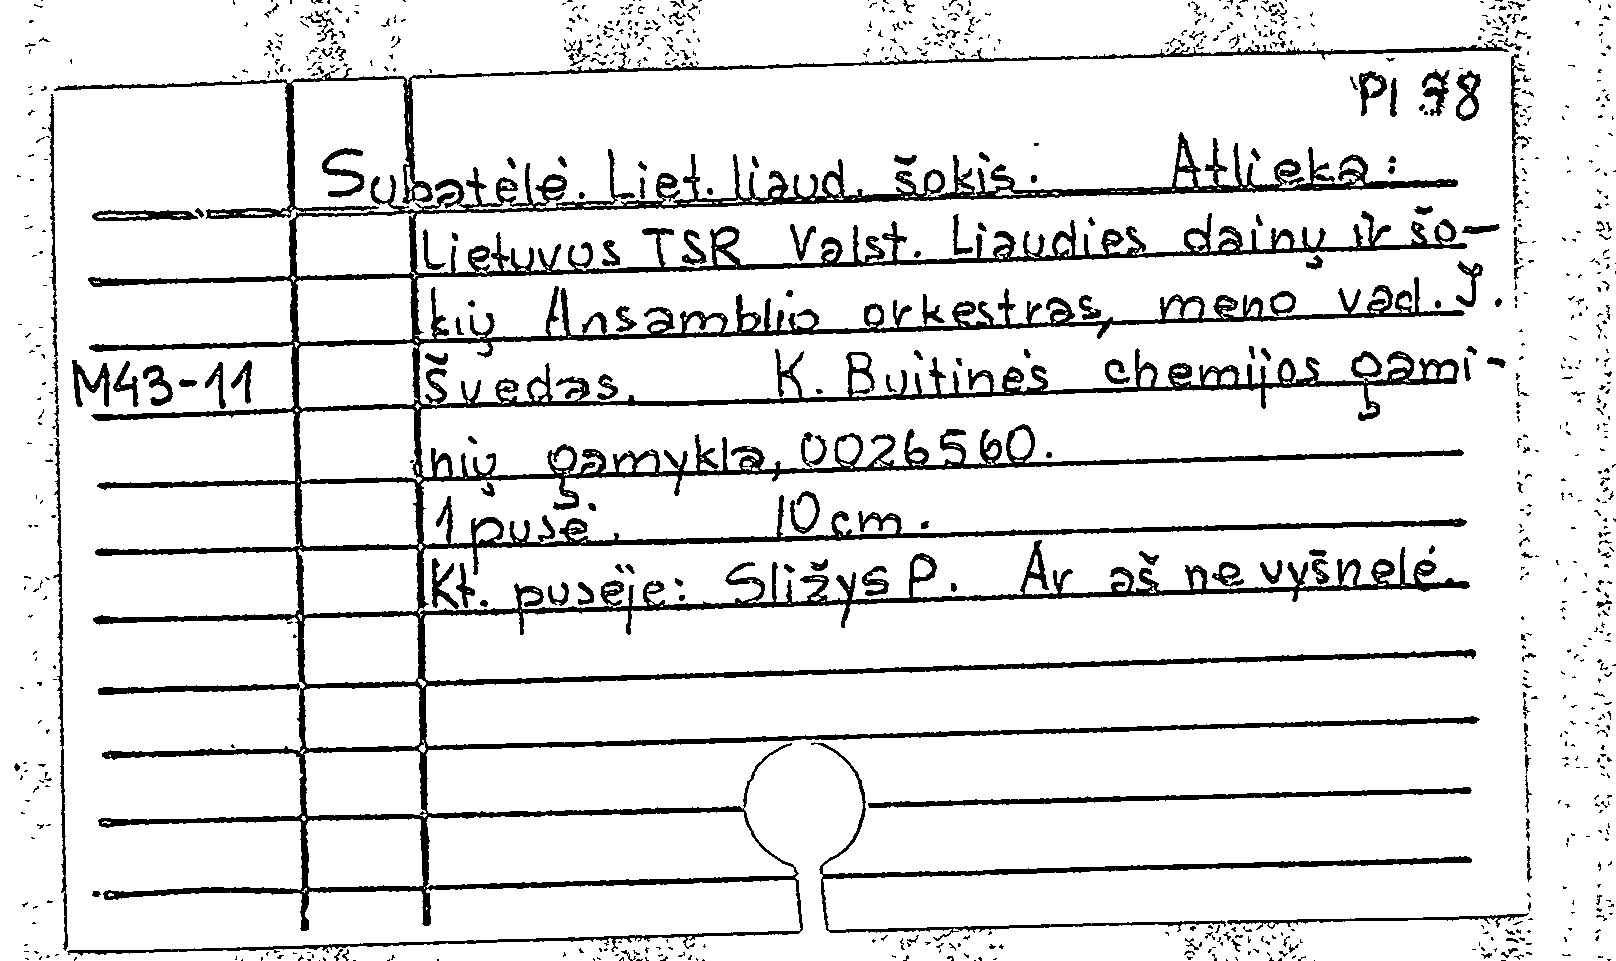 Pl 78
Subatėlė. Liet. liaud. šokis. Atlieka:
Lietuvos TSR Valst. Liaudies dainų ir šo-
kių Ansamblio orkestras, meno vad. J.
M43-11 Švedas. K. Buitinės chemijos gami-
nių gamykla, 0026560.
1 pusė. 10 cm.
Kt. pusėje: Sližys P. Ar aš ne vyšnelė.